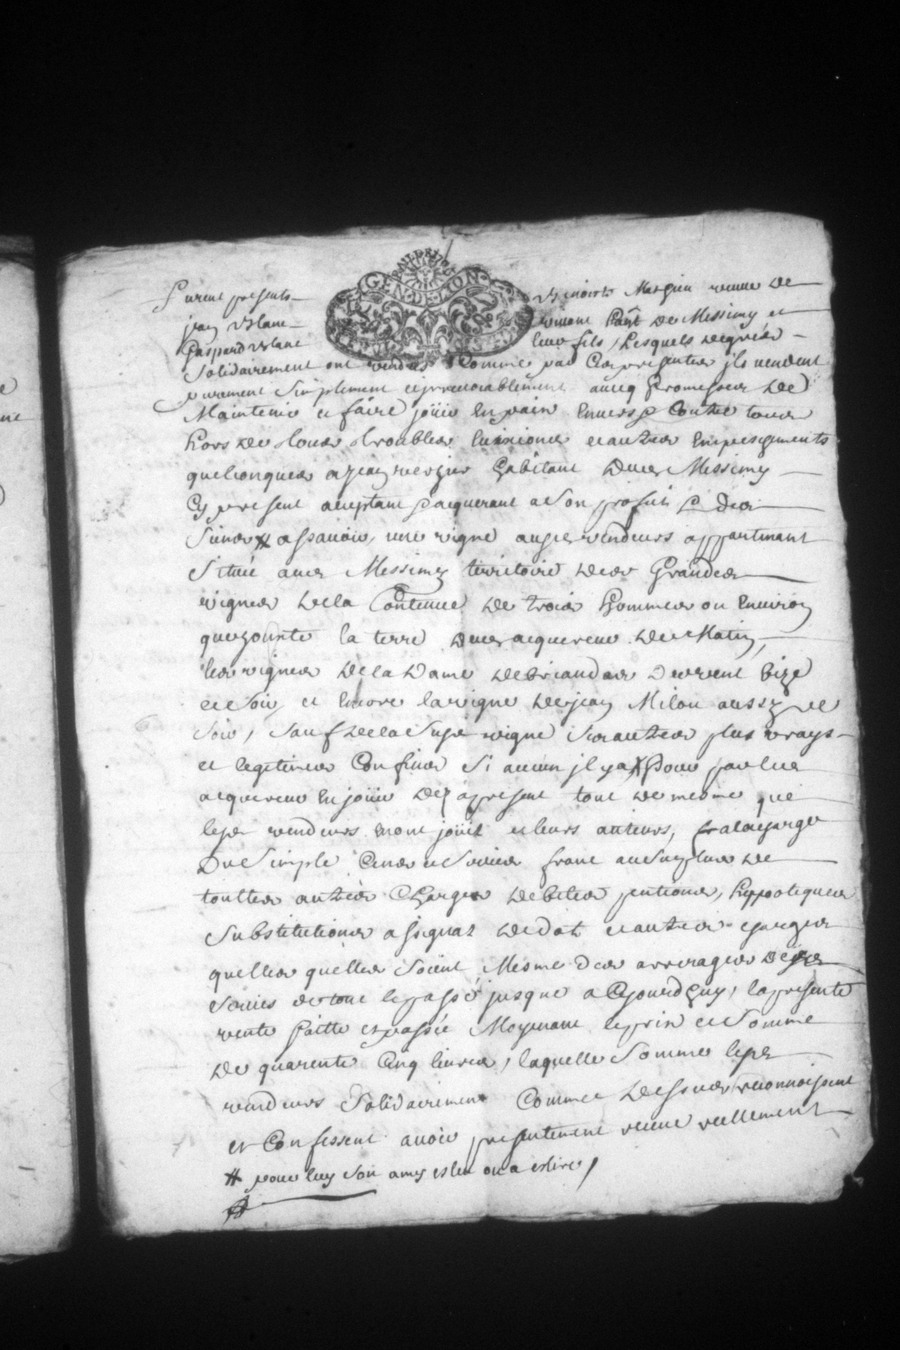 GEN. DE LYON
Furent presents Benoiste Mergieu veuve de
jean Blanc vivant hant de Messimy et
Gaspard Blanc leur fils, Lesquels de gréés
Solidairement ont vendus Comme par Ces presentes jls vendent
purement Simplement et jrrevocablement avecq promesses de
Maintenir et faire joüir En paix Envers & Contre tous
hors de tous troubles Evictions et autres Empeschements
quelconques a jean vergier habitant dud Messimy
Cy present acceptant & acquerant a Son profit & des
Siens # assavoir, une vigne auxd vendeurs appartenant
Situé aud Messimy territoire des Grandes
vignes de la Contenue de trois hommes ou Environ
que jouxte la terre dud acquereur de Matin,
les vignes de la Dame de briandas de vent bize
et Soir, et Encore la vigne de jean Milon aussy de
Soir, Sauf de lad vigne Ses autres plus vrays
et legitimes Confins Si aucun jl y a # Pour par led
acquereur En joüir dez apresent tout de mesme que
lesd vendeurs En ont joüit et leurs auteurs, Et a la charge
Du Simple Cens et Servis franc au Surplus de
touttes autres Charges debites pentions, hyppoteques
Substitutions assignat de dot et autres charges
quelles quelles Soient Mesme des arrerages desd
Servis de tout le passé jusque a Cejourd'huy, la presente
vente faitte et passée Moyenant le prix et Somme
de quarente Cinq livres, laquelle Somme lesd
vendeurs Solidairement Comme dessus reconnoissent
et Confessent avoir presentement receue reellement
# pour luy Son amy esleu ou a eslire,